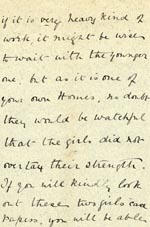 if it is very heavy kind of
work it might be wise
to wait with the younger
one. but as it is one of
your own Homes, no doubt
they would be watchful
that the girls did not
overtax their strength.
If you will kindly look
out these two girls case
papers, you will be able